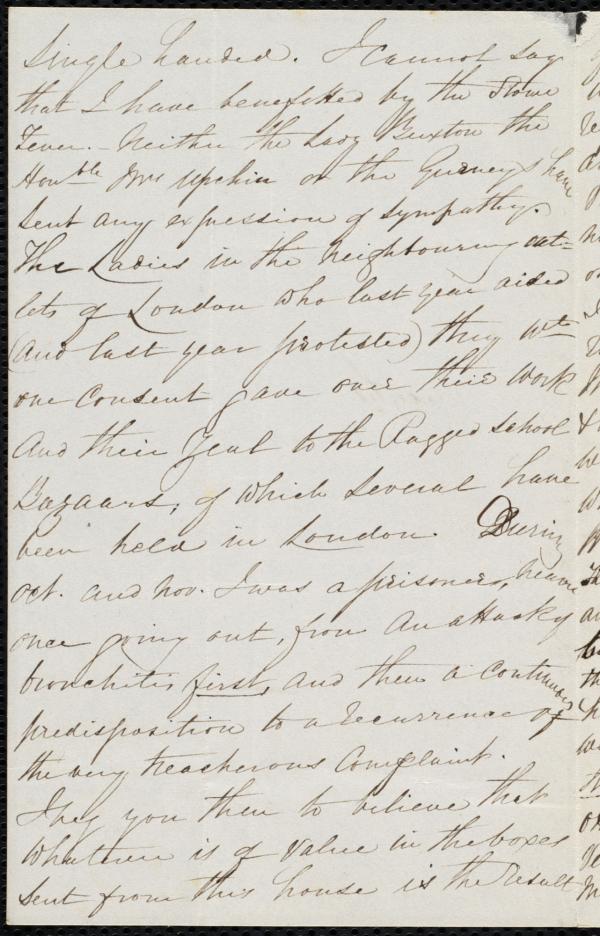 single handed. I cannot say
that I have benefitted by the Stowe
Fever. - Neither the Lady Buxton the
Honble Mrs Upchir or the Gurneys have
sent any expression of sympathy.
The Ladies in the neighbouring out=
lets of London who last year aided
(and last year protested) they wth
one consent gave over their work
And their Zeal to the Ragged School
Bazaars, of which several have
been held in London. During
Oct. and Nov. I was a prisoner, never
once going out, from an attack of
bronchitis first, and then a continuous
predisposition to a recurrence of
the very treacherous complaint.
I beg you then to believe that
whatever is of value in the boxes
sent from this house is the result